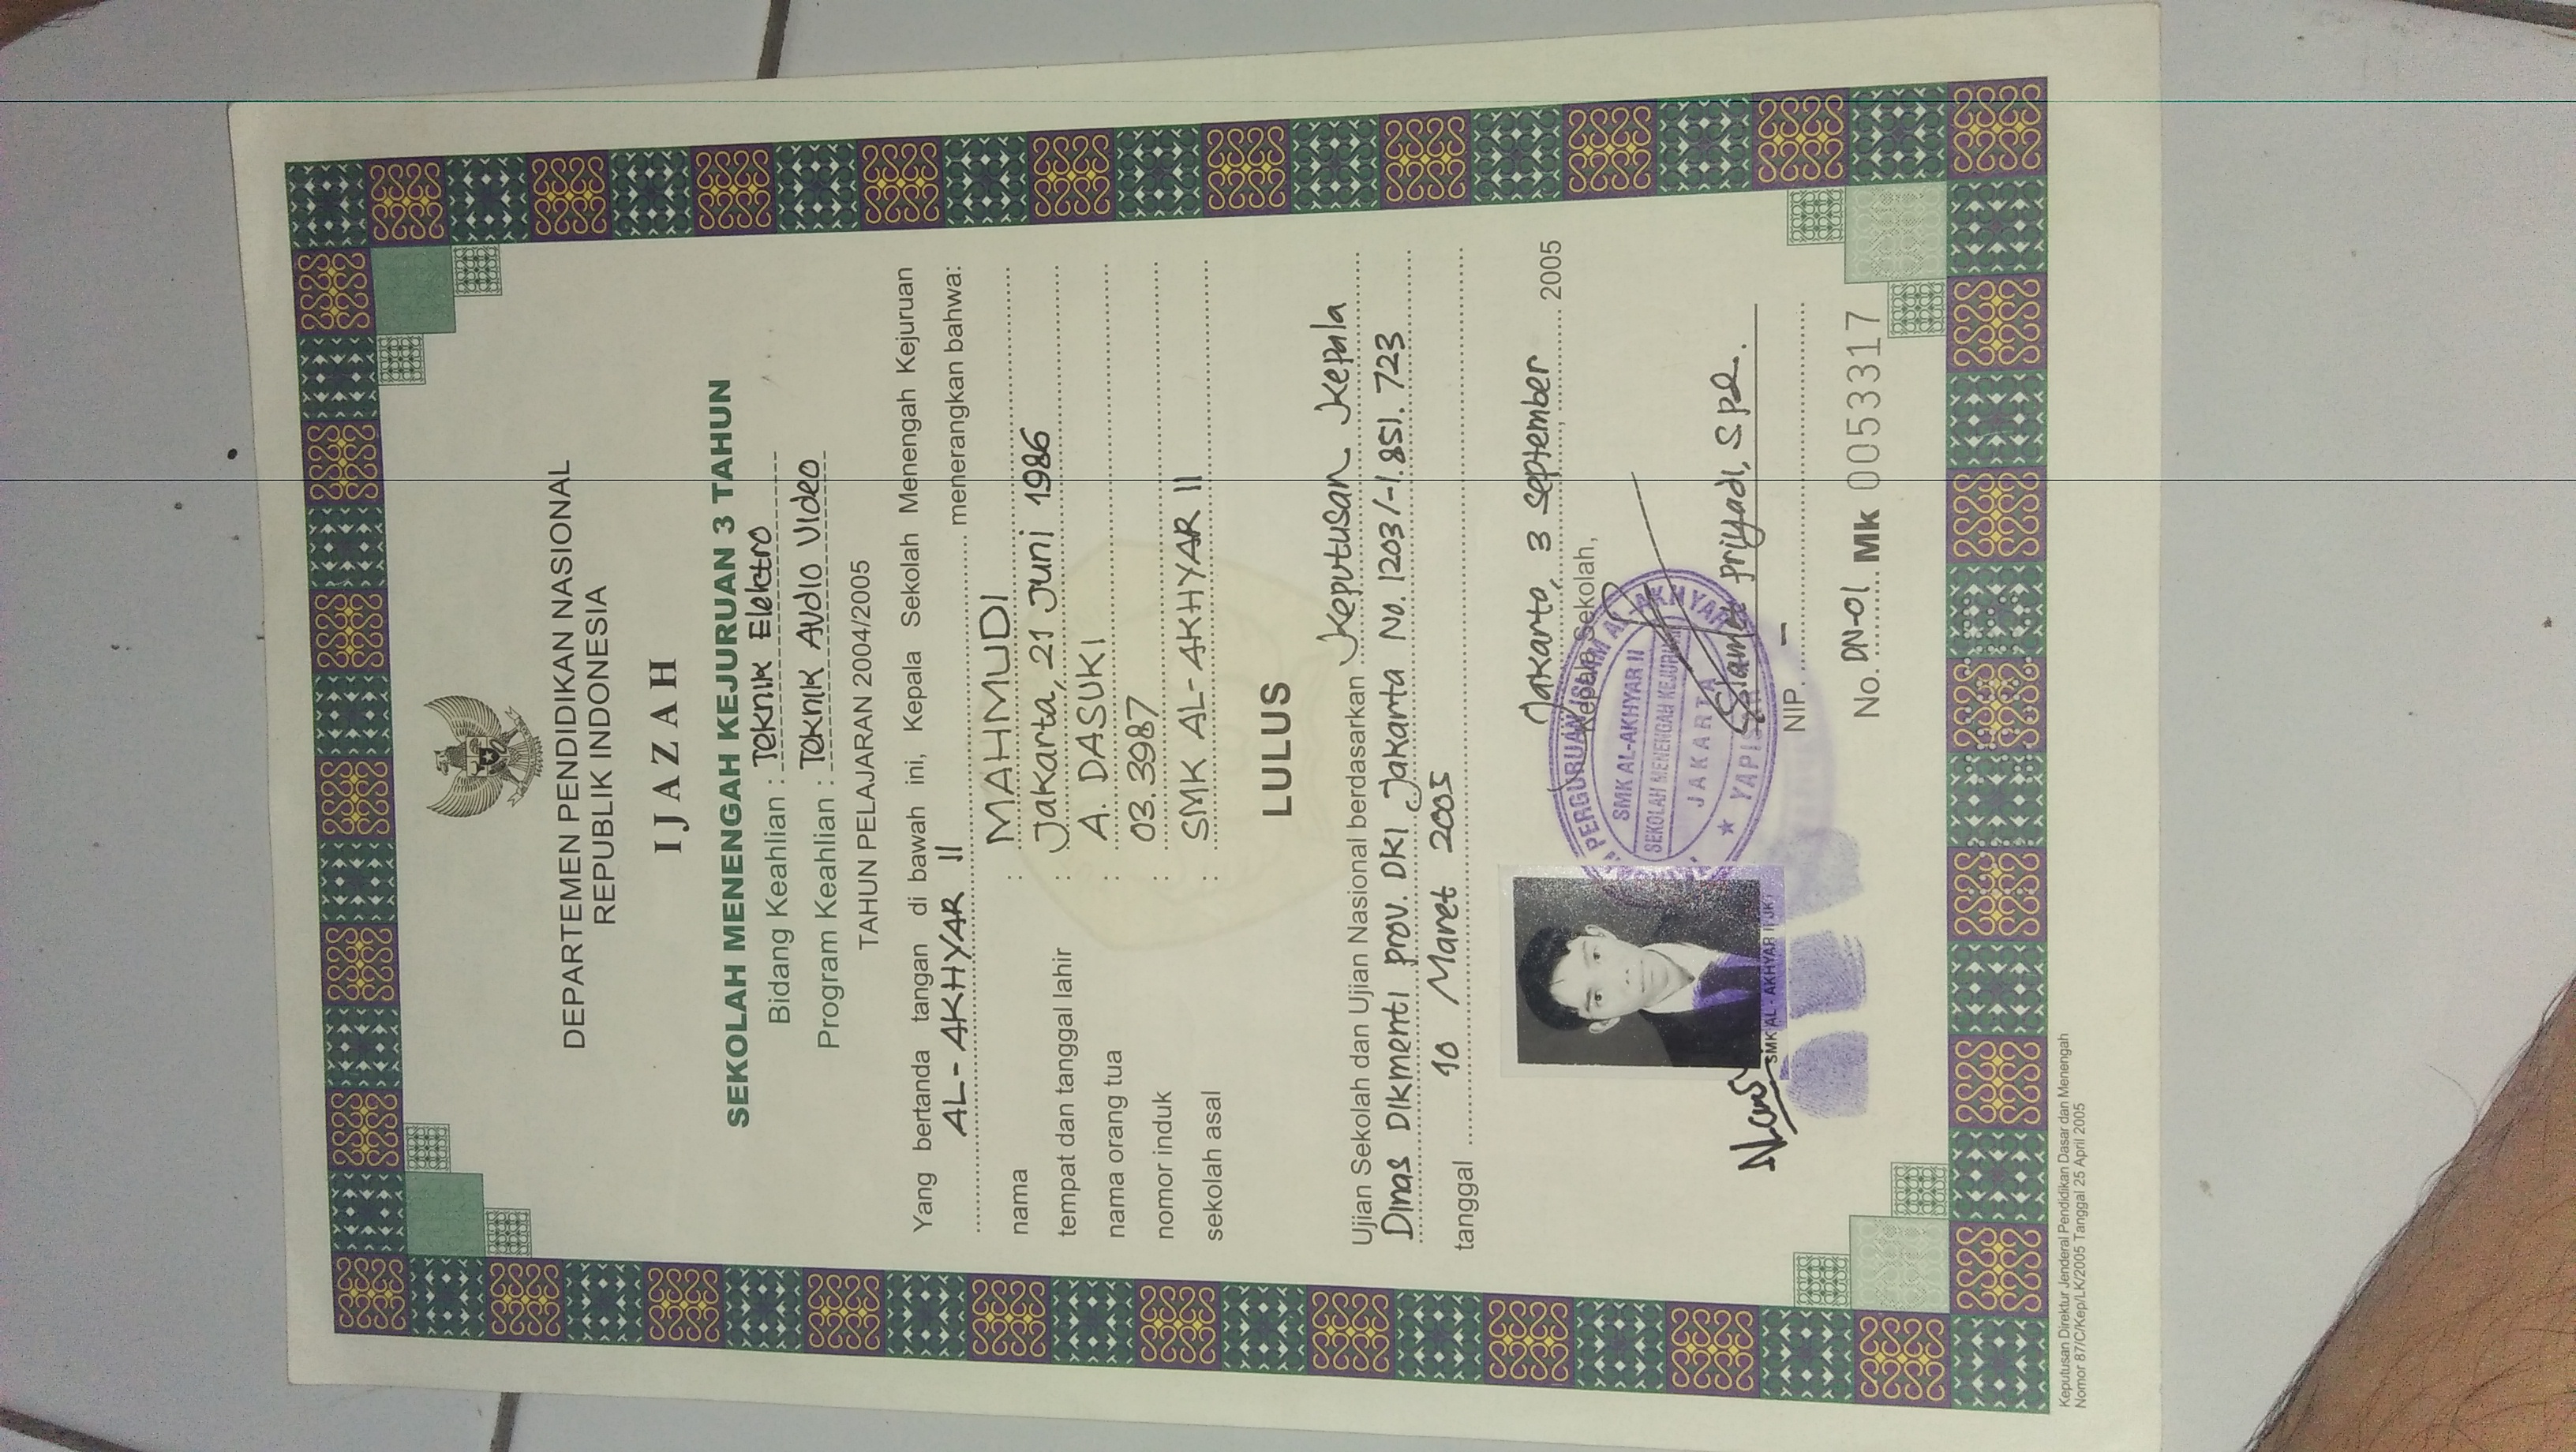 DEPARTEMEN PENDIDIKAN NASIONAL
REPUBLIK INDONESIA
IJAZAH
SEKOLAH MENENGAH KEJURUAN 3 TAHUN
Bidang Keahlian : Teknik Elektro
Program Keahlian : Teknik Audio Video
TAHUN PELAJARAN 2004/2005
Yang bertanda tangan di bawah ini, Kepala Sekolah Menengah Kejuruan
AL-AKHYAR II menerangkan bahwa:
nama : MAHMUDI
tempat dan tanggal lahir : Jakarta, 21 Juni 1986
nama orang tua : A. DASUKI
nomor induk : 03.3987
sekolah asal : SMK AL-AKHYAR II
LULUS
Ujian Sekolah dan Ujian Nasional berdasarkan Keputusan Kepala
Dinas Dikmenti prov. DKI Jakarta No. 1203/-1.851.723
tanggal 10 Maret 2005
Jakarta, 3 September 2005
Kepala Sekolah,
PERGURUAN ISLAM AL-AKHYAR
SMK AL-AKHYAR II
SEKOLAH MENENGAH KEJURUAN
JAKARTA
SMK AL - AKHYAR II
Slamet priyadi, S.Pd.
NIP. -
No. DN-01 Mk 0053317
Keputusan Direktur Jenderal Pendidikan Dasar dan Menengah
Nomor 87/C/Kep/LK/2005 Tanggal 25 April 2005